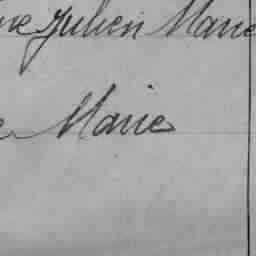 Julien Marie
Marie